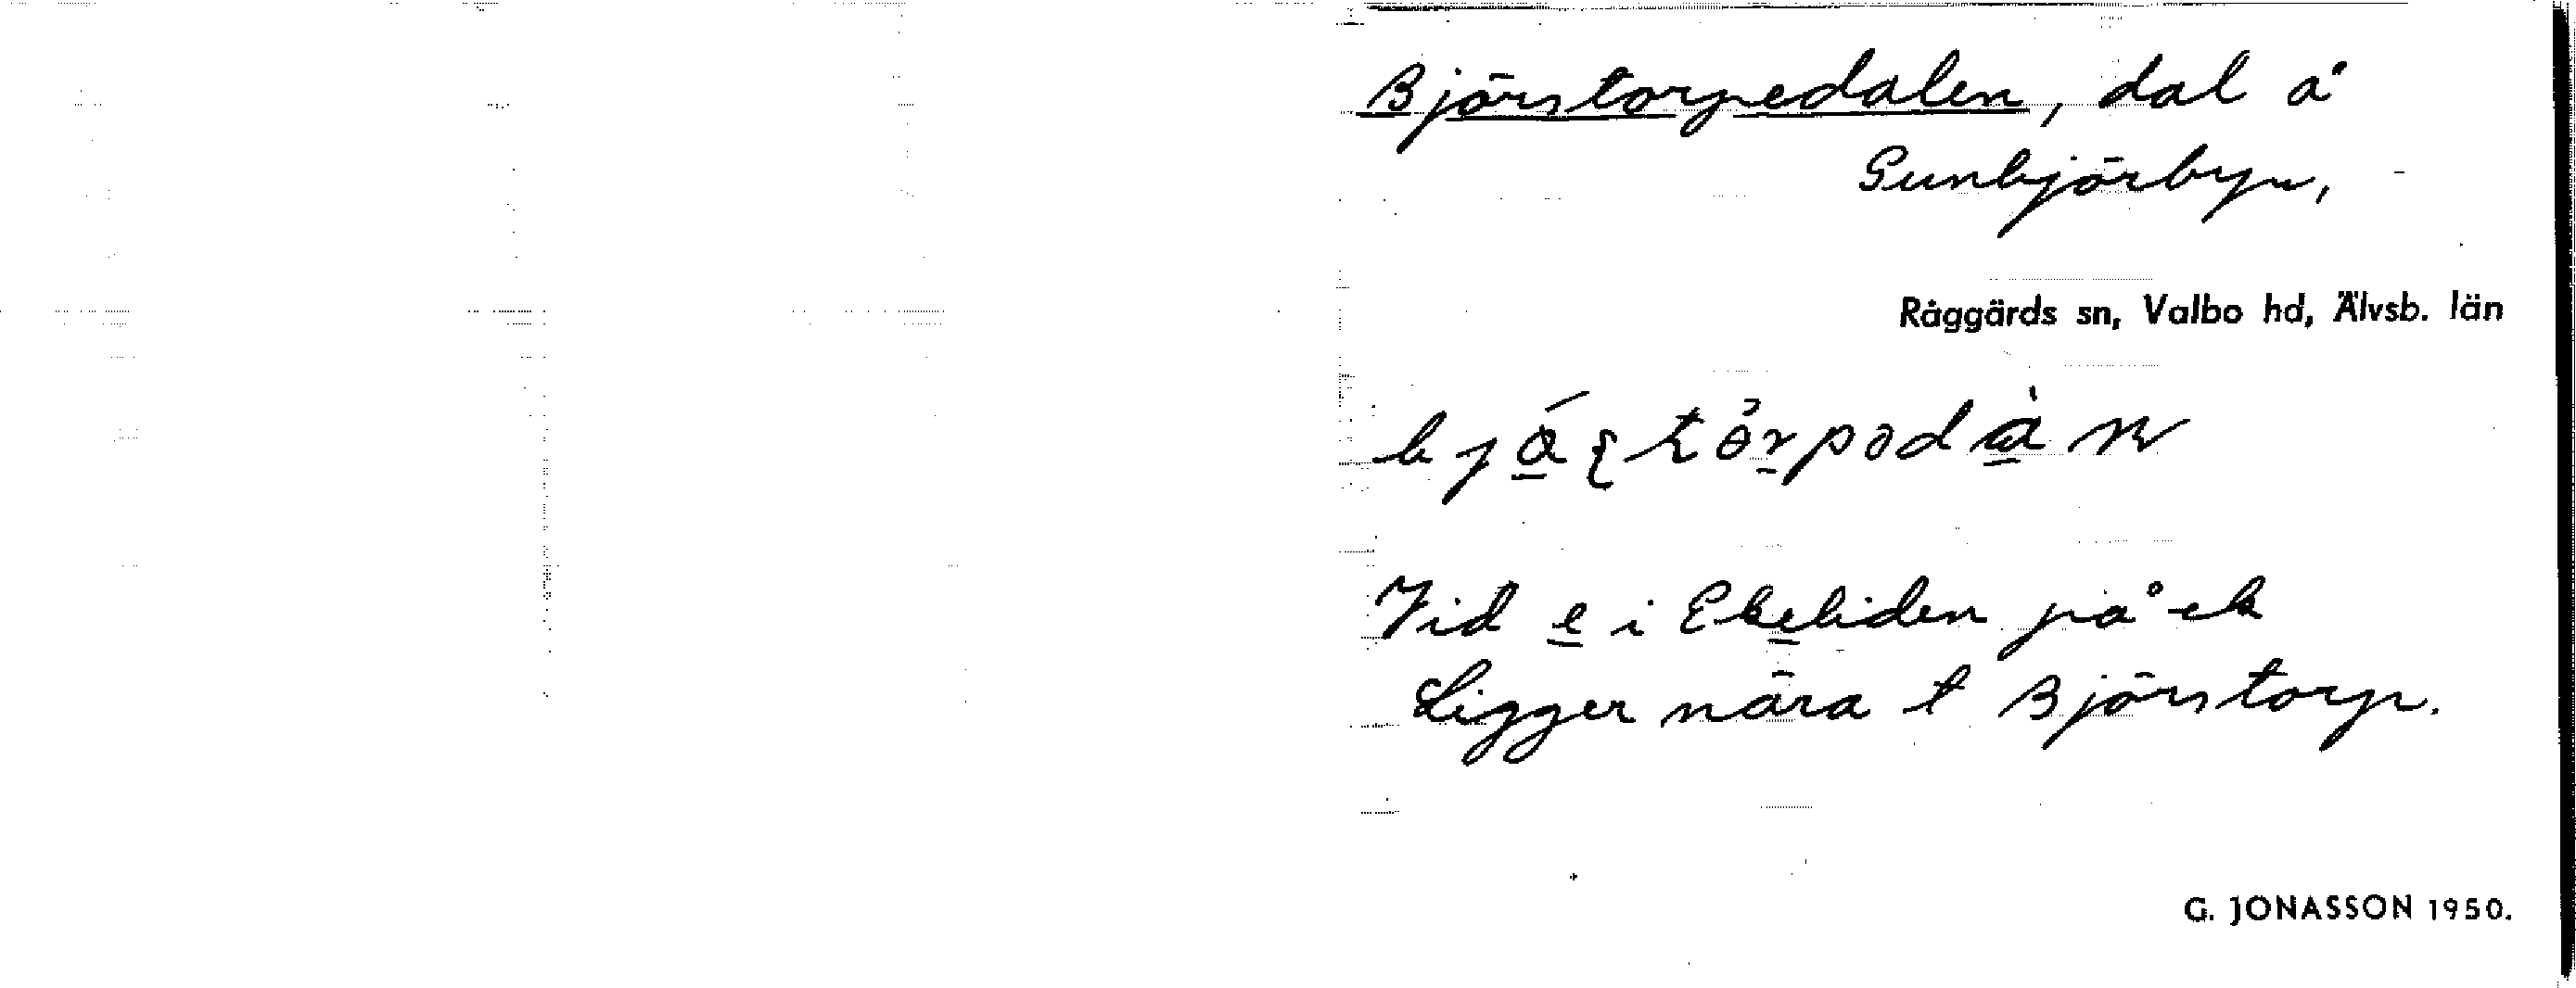 Björstorpedalen, dal å
Gunbjörbyn,
Råggärds sn, Valbo hd, Älvsb. län
Vid e i Ekeliden på ek
Ligger nära t Björstorp.
G. JONASSON 1950.